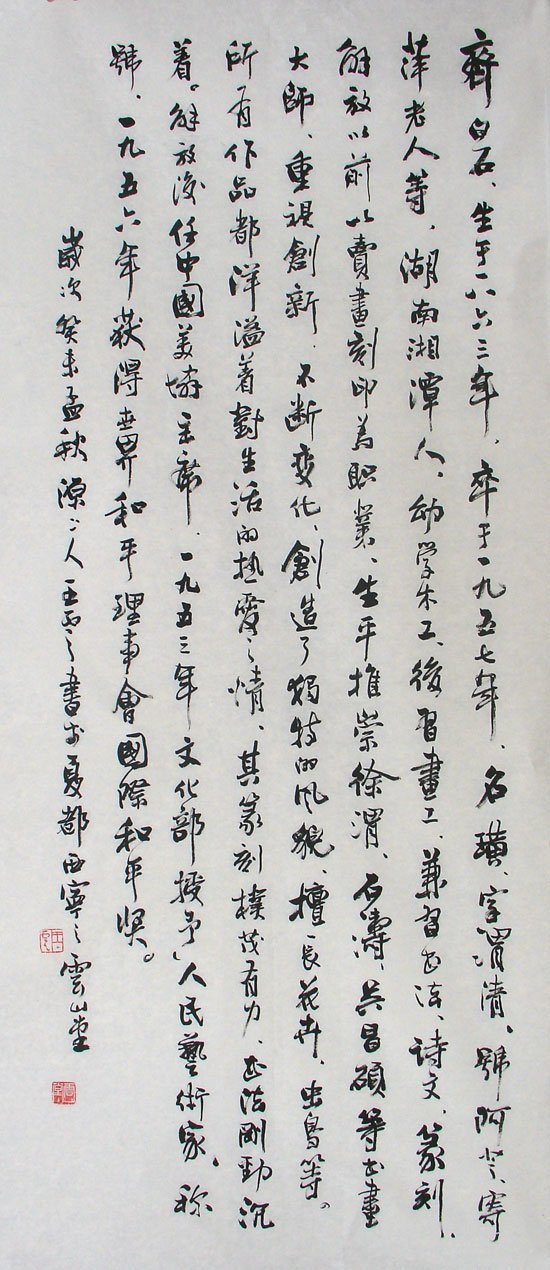 齊白石、生于一八六三年，卒于一九五七年、名璜、字渭清、號阿芝、寄
萍老人等，湖南湘潭人、幼學木工、後習畫工、兼習書法、詩文、篆刻，
解放以前以賣畫刻印為職業、生平推崇徐渭、石濤、吳昌碩等書畫
大師、重視創新，不断变化、創造了獨特的风貌、擅長花卉，虫鳥等。
所有作品都洋溢着對生活的热愛之情、其篆刻樸茂有力、书法剛勁沉
着。解放後任中國美協主席，一九五三年文化部授予人民藝術家、称
號，一九五六年获得世界和平理事會國際和平奖。
歲次癸未孟秋 王 書於夏都西寧之雲山堂